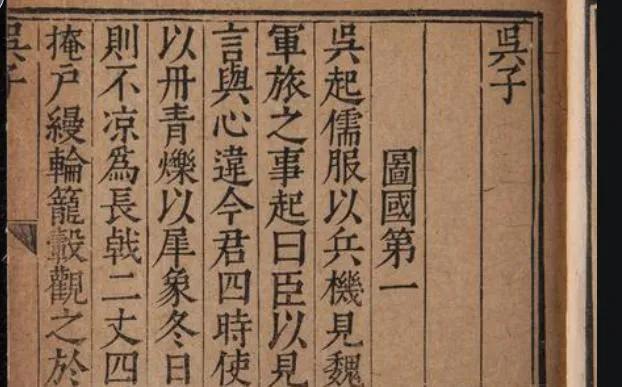 吳子
圖國第一
吳起儒服以兵機見魏
軍旅之事起曰臣以見
言與心違今君四時使
以丹青爍以犀象冬日
則不凉爲長戟二丈四
掩戶縵輪籠轂觀之於
吳子